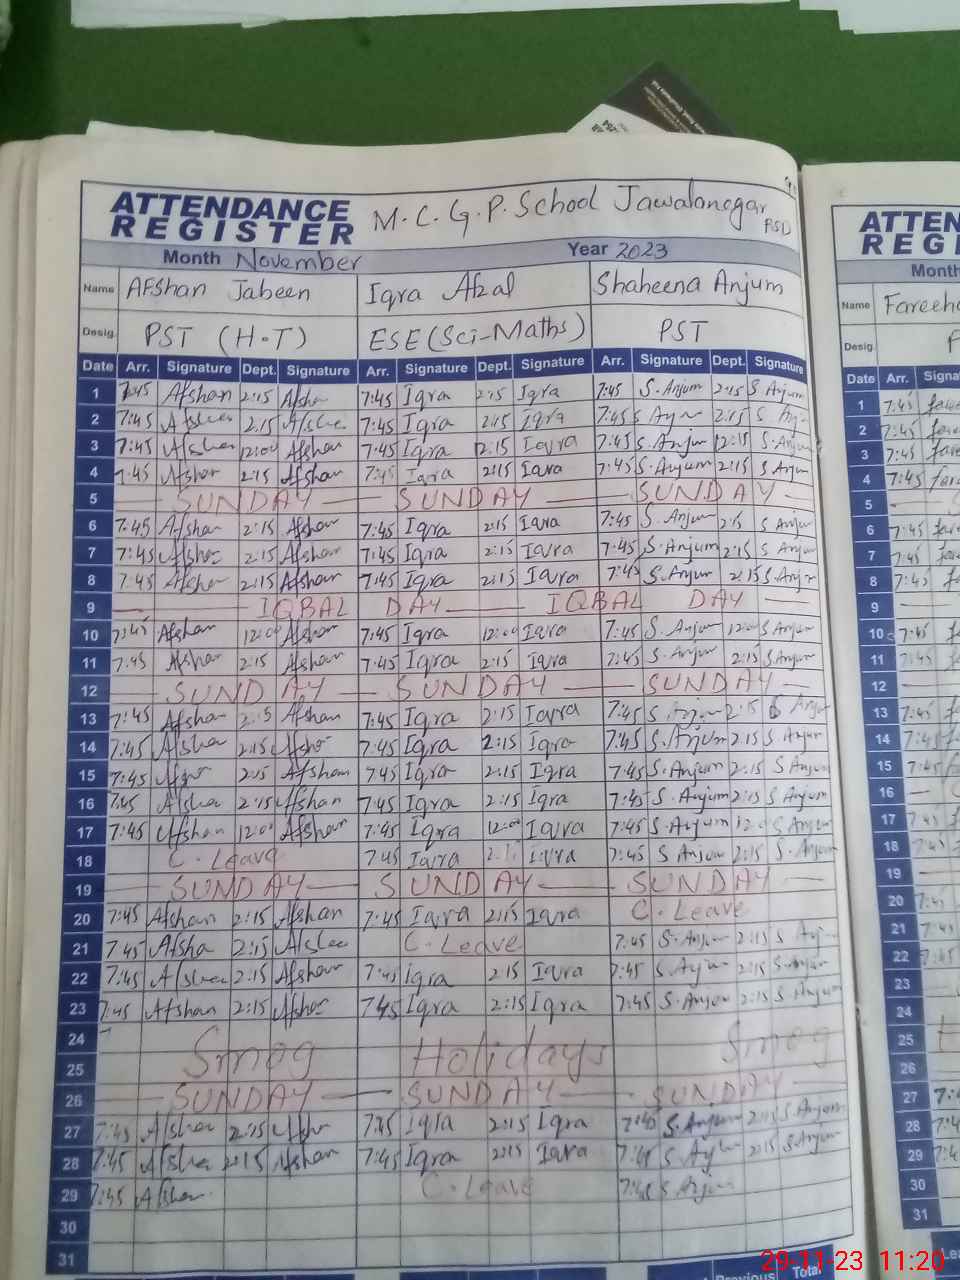 ATTENDANCE REGISTER M.C.G.P. School Jawalanagar RSD
Month November Year 2023
Name Afshan Jabeen Iqra Afzal Shaheena Anjum
Desig. PST (H.T) ESE (Sci-Maths) PST
Date Arr. Signature Dept. Signature Arr. Signature Dept. Signature Arr. Signature Dept. Signature
1 7:45 Afshan 2:15 Afshan 7:45 Iqra 2:15 Iqra 7:45 S.Anjum 2:15 S Anjum
2 7:45 Afshan 2:15 Afshan 7:45 Iqra 2:15 Iqra 7:45 S Anjum 2:15 S
3 7:45 Afshan 12:00 Afshan 7:45 Iqra 12:15 Iqra 7:45 S.Anjum 12:15 S.Anjum
4 7:45 Afshan 2:15 Afshan 7:45 Iqra 2:15 Iqra 7:45 S.Anjum 2:15 S Anjum
5 SUNDAY SUNDAY SUNDAY
6 7:45 Afshan 2:15 Afshan 7:45 Iqra 2:15 Iqra 7:45 S.Anjum 2:15 S Anjum
7 7:45 Afshan 2:15 Afshan 7:45 Iqra 2:15 Iqra 7:45 S.Anjum 2:15 S Anjum
8 7:45 Afshan 2:15 Afshan 7:45 Iqra 2:15 Iqra 7:45 S.Anjum 2:15 S Anjum
9 IQBAL DAY IQBAL DAY
10 7:45 Afshan 12:00 Afshan 7:45 Iqra 12:00 Iqra 7:45 S.Anjum 12:00 S Anjum
11 7:45 Afshan 2:15 Afshan 7:45 Iqra 2:15 Iqra 7:45 S.Anjum 2:15 S Anjum
12 SUNDAY SUNDAY SUNDAY
13 7:45 Afshan 2:15 Afshan 7:45 Iqra 2:15 Iqra 7:45 S Anjum 2:15 S Anjum
14 7:45 Afshan 2:15 Afshan 7:45 Iqra 2:15 Iqra 7:45 S.Anjum 2:15 S Anjum
15 7:45 Afshan 2:15 Afshan 7:45 Iqra 2:15 Iqra 7:45 S.Anjum 2:15 S Anjum
16 7:45 Afshan 2:15 Afshan 7:45 Iqra 2:15 Iqra 7:45 S.Anjum 2:15 S Anjum
17 7:45 Afshan 12:00 Afshan 7:45 Iqra 12:00 Iqra 7:45 S.Anjum 12:00 S Anjum
18 C.Leave 7:45 Iqra Iqra 7:45 S Anjum 2:15 S.Anjum
19 SUNDAY SUNDAY SUNDAY
20 7:45 Afshan 2:15 Afshan 7:45 Iqra 2:15 Iqra C.Leave
21 7:45 Afshan 2:15 Afshan C.Leave 7:45 S.Anjum 2:15 S
22 7:45 Afshan 2:15 Afshan 7:45 Iqra 2:15 Iqra 7:45 S Anjum 2:15 S.Anjum
23 7:45 Afshan 2:15 Afshan 7:45 Iqra 2:15 Iqra 7:45 S.Anjum 2:15 S Anjum
24
25 Smog Holidays Smog
26 SUNDAY SUNDAY SUNDAY
27 7:45 Afshan 2:15 Afshan 7:45 Iqra 2:15 Iqra 7:45 S.Anjum 2:15 S.Anjum
28 7:45 Afshan 2:15 Afshan 7:45 Iqra 2:15 Iqra 7:45 S Anjum 2:15 S.Anjum
29 7:45 Afshan C.Leave 7:45 S Anjum
30
31
Previous Total
29-11-23 11:20
ATTEN
REGI
Month
Name Fareeha
Desig. P
Date Arr. Signa
1 7:45
2 7:45
3 7:45
4 7:45
5
6 7:45
7 7:45
8 7:45
9
10 7:45
11 7:45
12
13 7:45
14 7:45
15 7:45
16
17 7:45
18 7:45
19
20 7:45
21 7:45
22 7:45
23
24
25
26
27 7:4
28 7:4
29 7:4
30
31